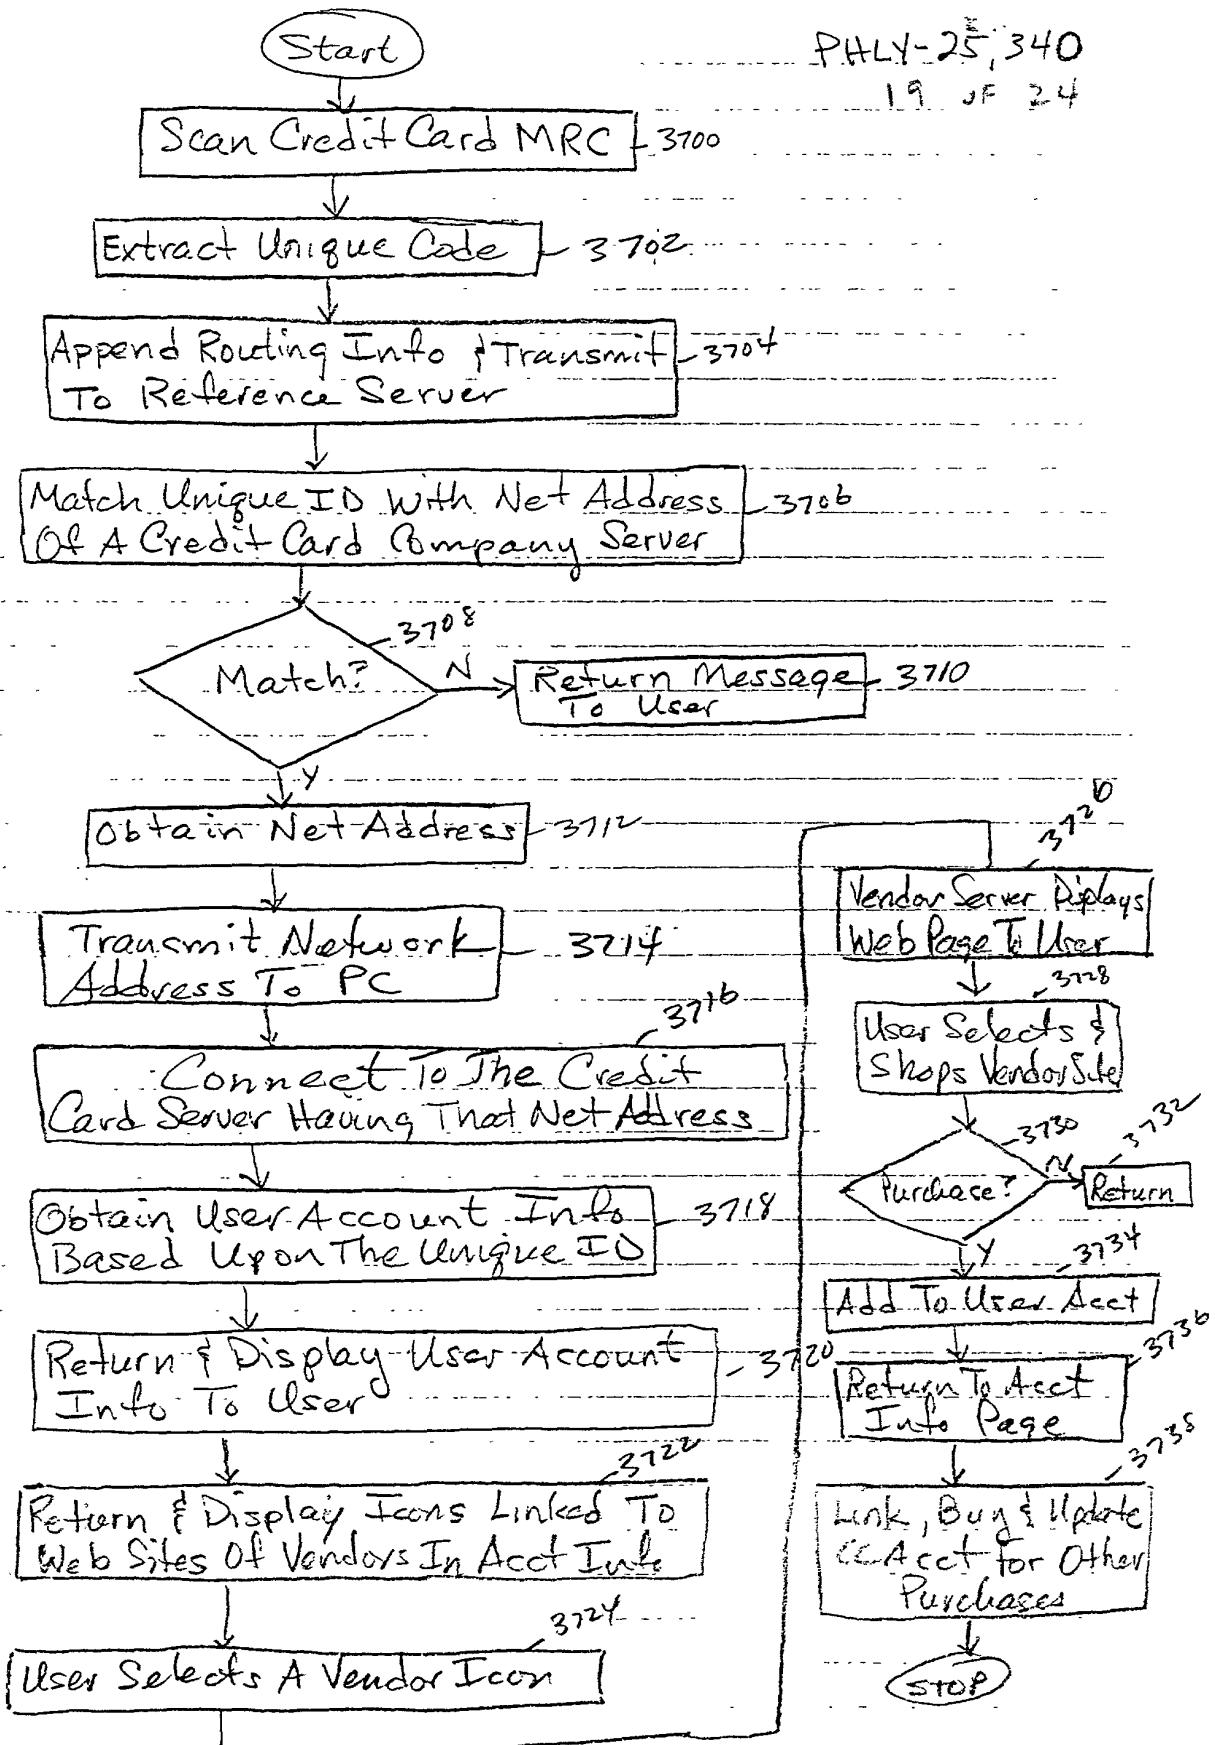 Start
PHLY-25,340
19 OF 24
Scan Credit Card MRC
3700
Extract Unique Code
3702
Append Routing Info & Transmit
To Reference Server
3704
Match Unique ID With Net Address
Of A Credit Card Company Server
3706
Match?
3708
N
Return Message
To User
3710
Y
Obtain Net Address
3712
Transmit Network
Address To PC
3714
Connect To The Credit
Card Server Having That Net Address
3716
Obtain User Account Info
Based Upon The Unique ID
3718
Return & Display User Account
Info To User
3720
Return & Display Icons Linked To
Web Sites Of Vendors In Acct Info
3722
User Selects A Vendor Icon
3724
Vendor Server Displays
Web Page To User
3726
User Selects &
Shops Vendor Site
3728
Purchase?
3730
N
Return
3732
Y
Add To User Acct
3734
Return To Acct
Info Page
3736
Link, Buy & Update
CC Acct for Other
Purchases
3738
STOP